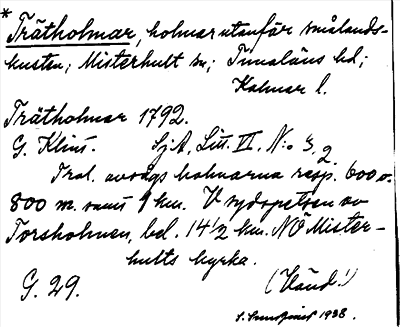 * Trätholmar, holmar utanför smålands-
kusten; Misterhult sn; Tunaläns hd;
Kalmar l.
Trätholmar 1792.
G. Klint. SjA, Litt. II. N:o 3.
2
Trol. avsågs holmarna resp. 600 o.
800 m. samt 1 km. V sydspetsen av
Torsholmen, bel. 14 1/2 km. NÖ Mister-
hults kyrka.
G. 29. (Vänd!)
1938.